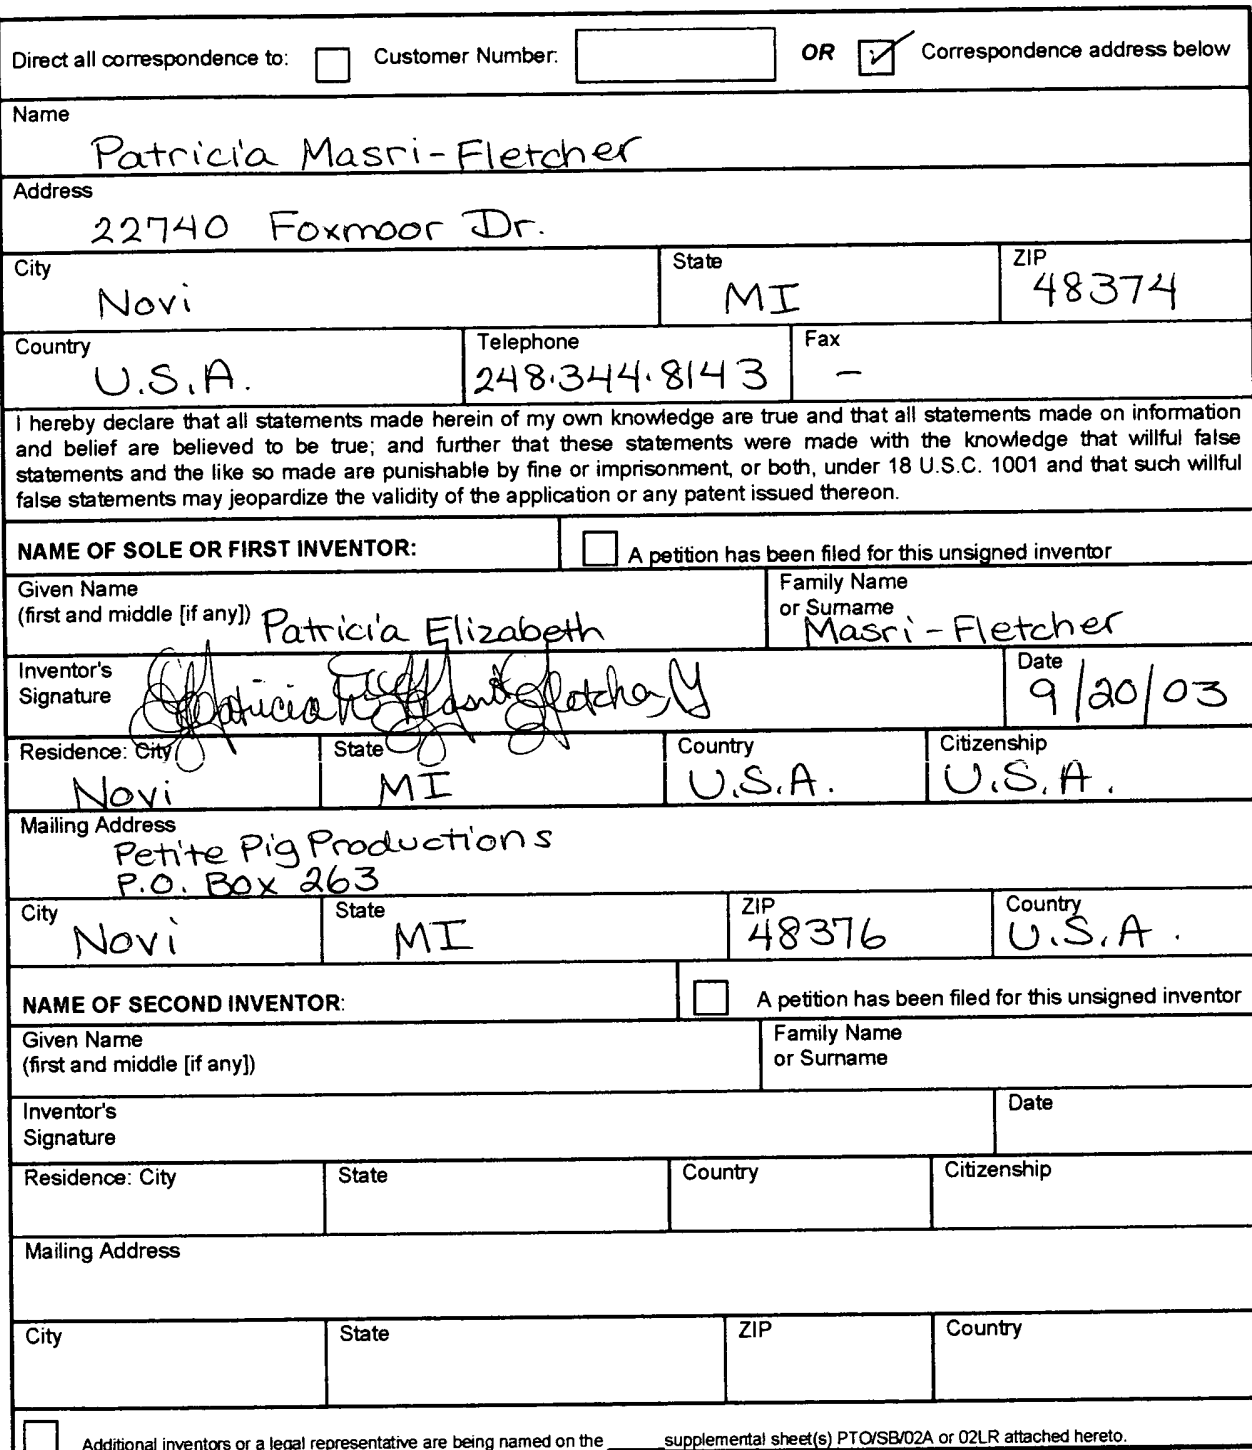 Direct all correspondence to: Customer Number: OR Correspondence address below
Name
Patricia Masri-Fletcher
Address
22740 Foxmoor Dr.
City State ZIP
Novi MI 48374
Country Telephone Fax
U.S.A. 248.344.8143 -
I hereby declare that all statements made herein of my own knowledge are true and that all statements made on information
and belief are believed to be true; and further that these statements were made with the knowledge that willful false
statements and the like so made are punishable by fine or imprisonment, or both, under 18 U.S.C. 1001 and that such willful
false statements may jeopardize the validity of the application or any patent issued thereon.
NAME OF SOLE OR FIRST INVENTOR: A petition has been filed for this unsigned inventor
Given Name Family Name
(first and middle [if any]) Patricia Elizabeth or Surname Masri-Fletcher
Inventor's Date
Signature 9/20/03
Residence: City State Country Citizenship
Novi MI U.S.A. U.S.A.
Mailing Address
Petite Pig Productions
P.O. Box 263
City State ZIP Country
Novi MI 48376 U.S.A.
NAME OF SECOND INVENTOR: A petition has been filed for this unsigned inventor
Given Name Family Name
(first and middle [if any]) or Surname
Inventor's Date
Signature
Residence: City State Country Citizenship
Mailing Address
City State ZIP Country
Additional inventors or a legal representative are being named on the _____supplemental sheet(s) PTO/SB/02A or 02LR attached hereto.